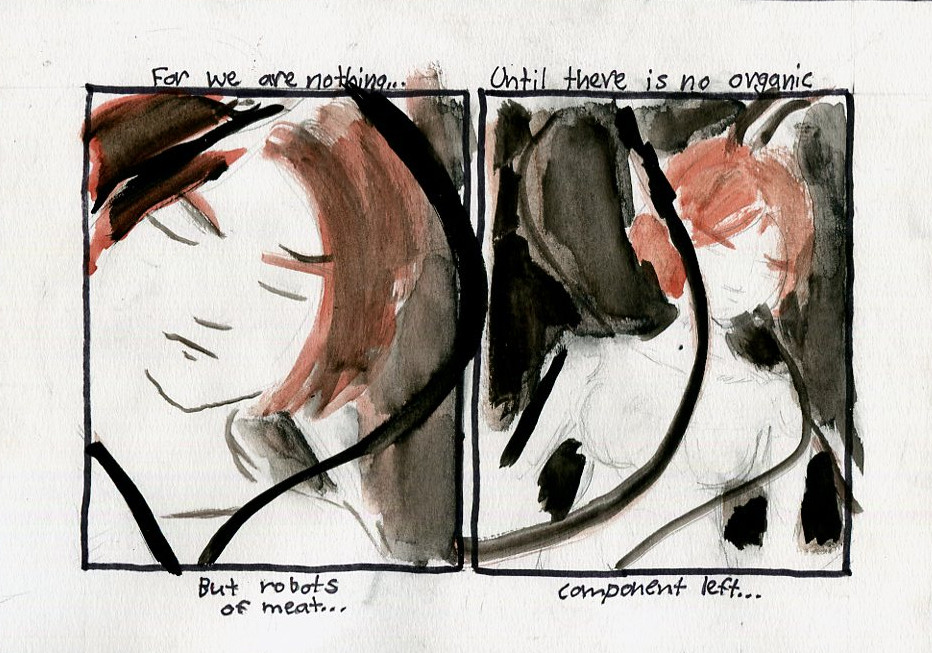 For we are nothing...
But robots
of meat...
Until there is no organic
component left...